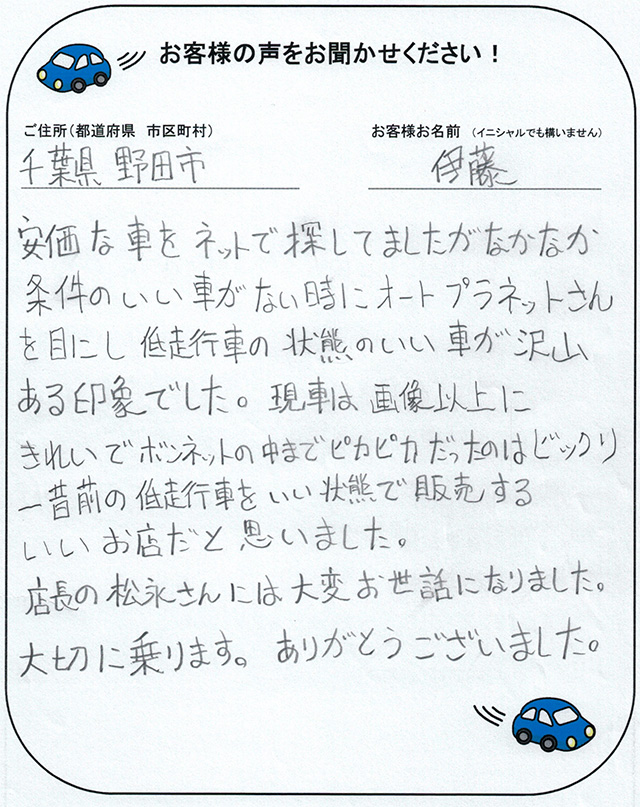 お客様の声をお聞かせください！
ご住所（都道府県 市区町村）
お客様お名前 （イニシャルでも構いません）
千葉県 野田市
伊藤
安価な車をネットで探してましたがなかなか
条件のいい車がない時にオートプラネットさん
を目にし 低走行車の状態のいい車が沢山
ある印象でした。現車は画像以上に
きれいでボンネットの中までピカピカだったのはビックリ
一昔前の低走行車をいい状態で販売する
いいお店だと思いました。
店長の松永さんには大変お世話になりました。
大切に乗ります。ありがとうございました。